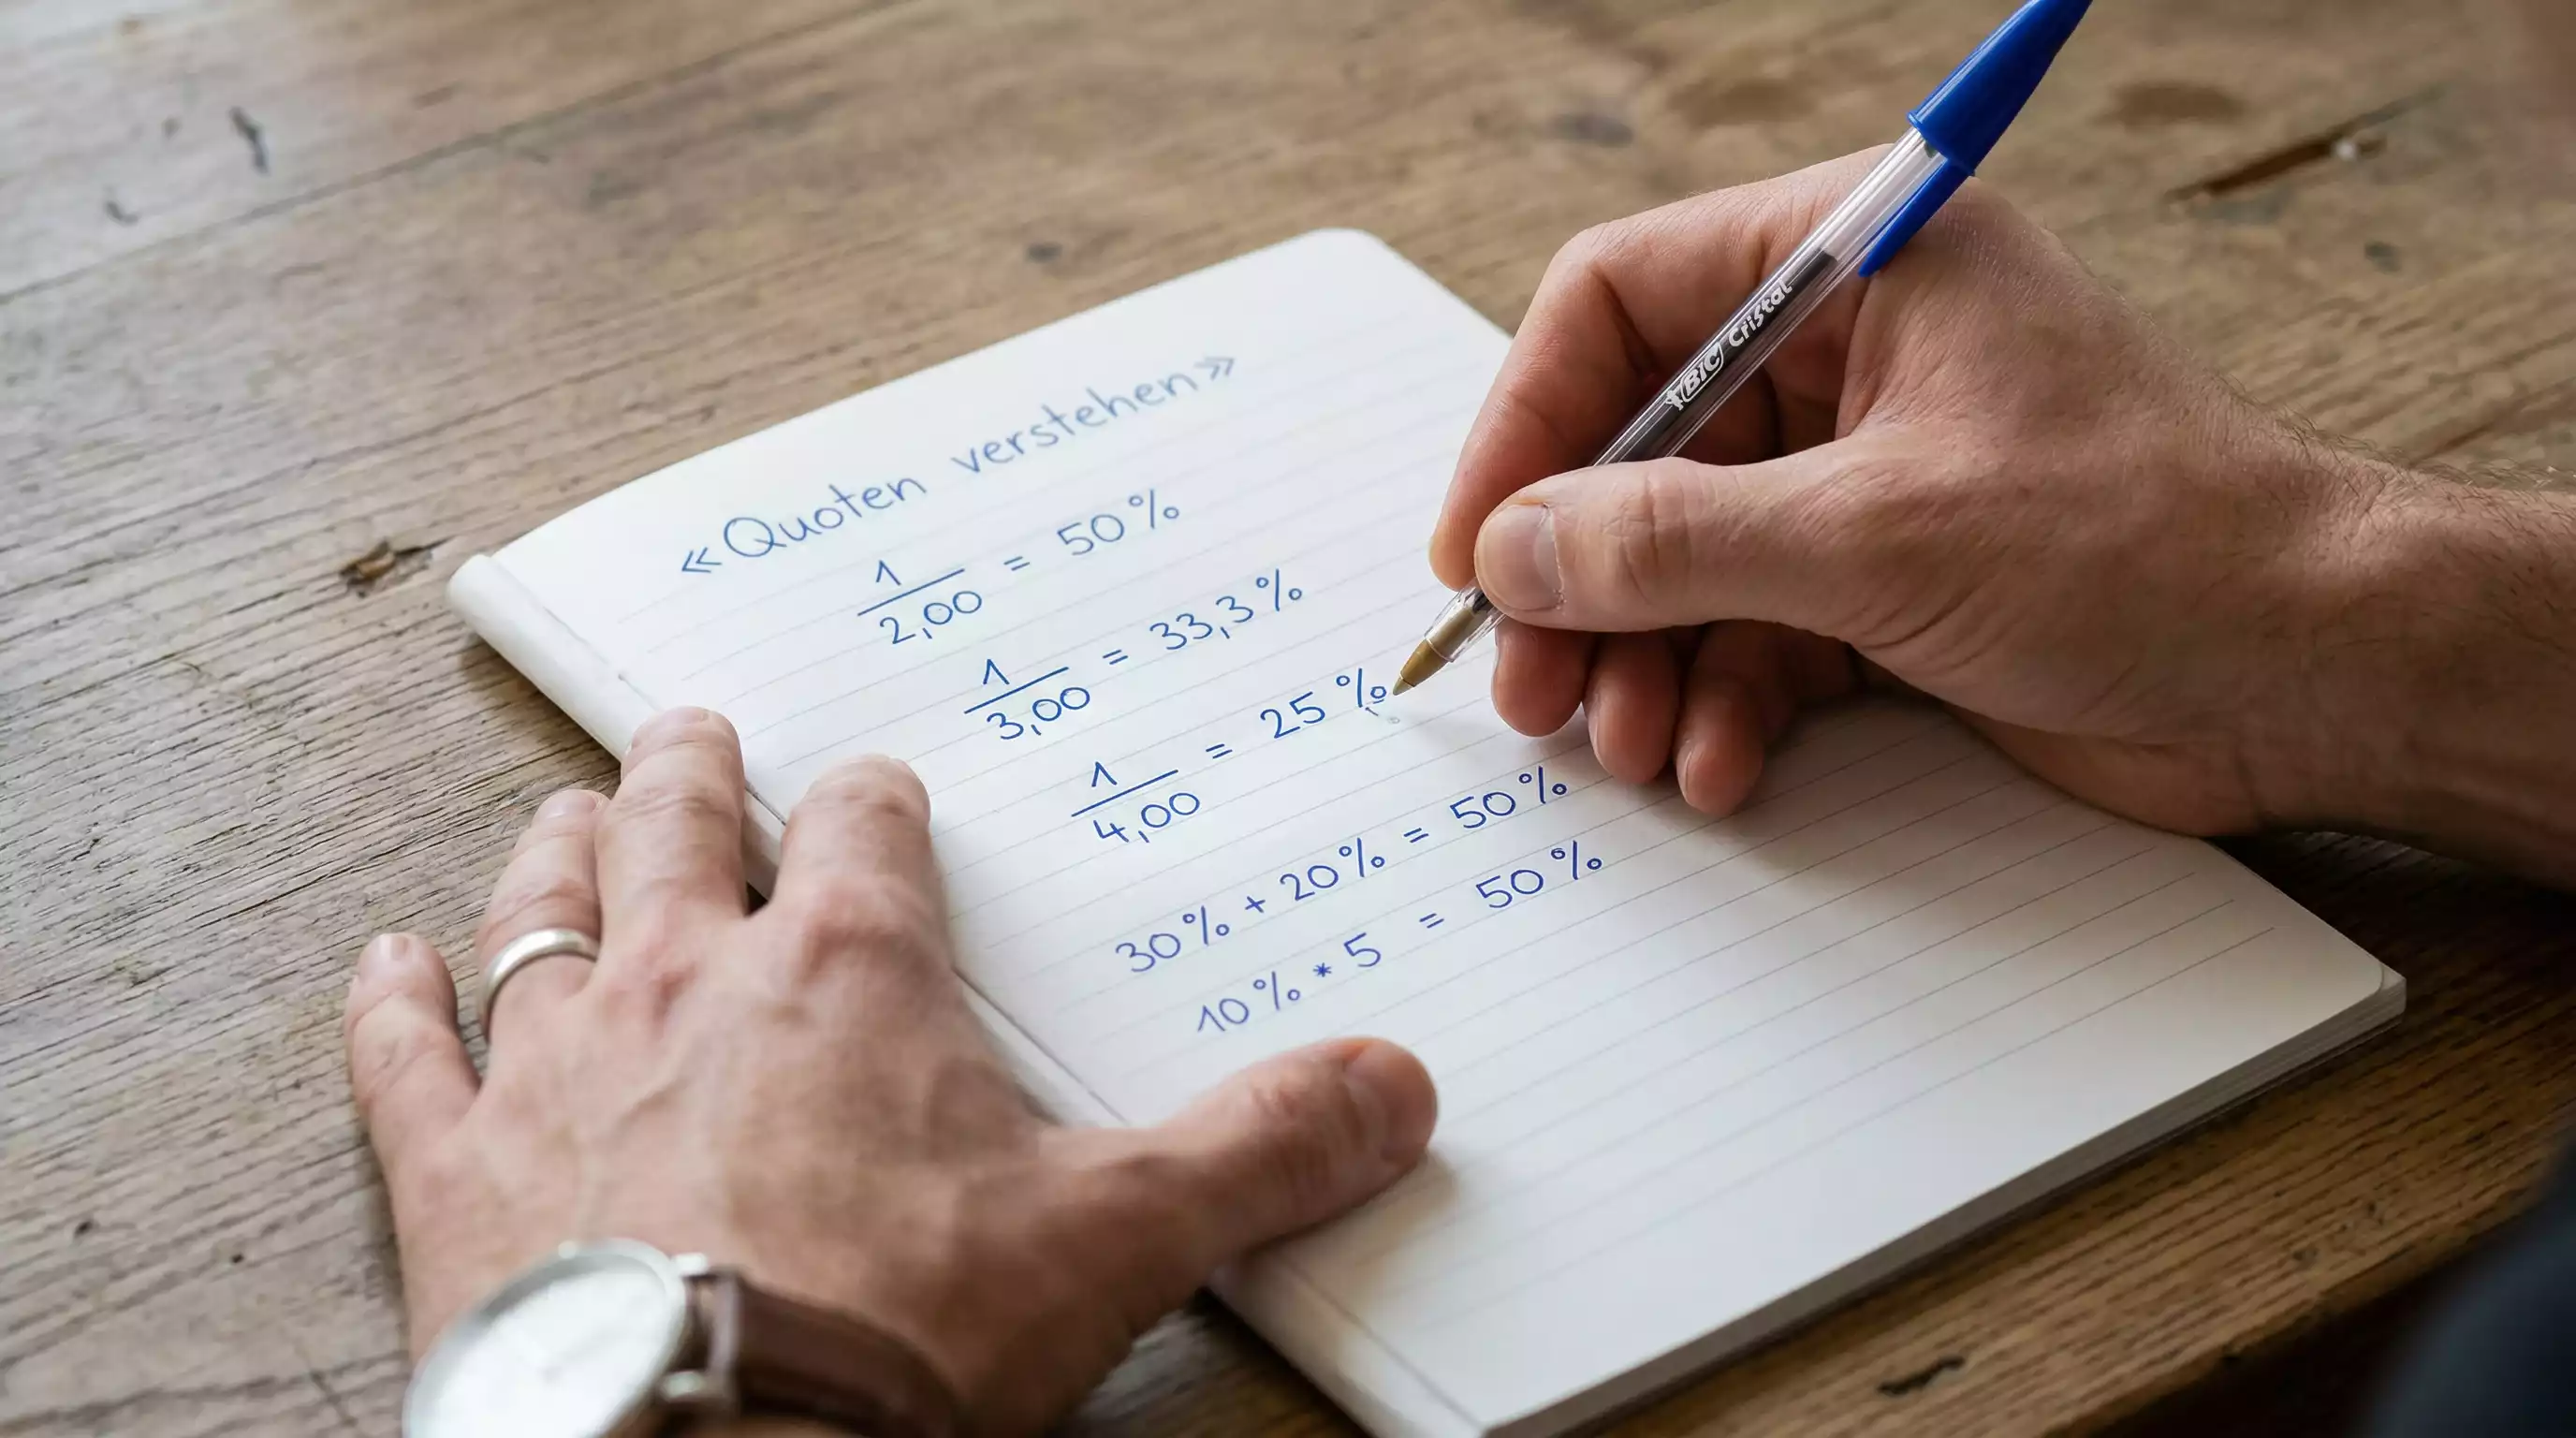 «Quoten verstehen»
1/2,00 = 50 %
1/3,00 = 33,3 %
1/4,00 = 25 %
30 % + 20 % = 50 %
10 % * 5 = 50 %
BIC Cristal